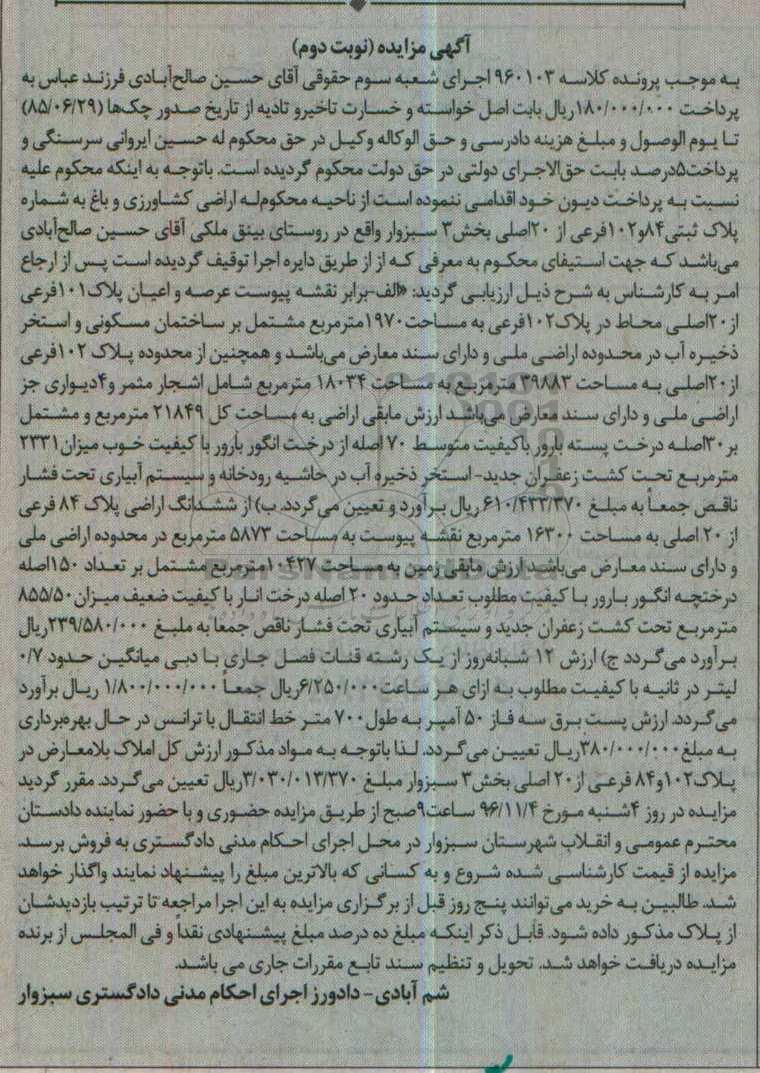 آگهی مزایده (نوبت دوم)
به موجب پرونده کلاسه ۹۶۰۱۰۳ اجرای شعبه سوم حقوقی آقای حسین صالح‌آبادی فرزند عباس به
پرداخت ۱۸۰/۰۰۰/۰۰۰ریال بابت اصل خواسته و خسارت تاخیرو تادیه از تاریخ صدور چک‌ها (۸۵/۰۶/۲۹)
تا یوم الوصول و مبلغ هزینه دادرسی و حق الوکاله وکیل در حق محکوم له حسین ایروانی سرسنگی و
پرداخت۵درصد بابت حق‌الاجرای دولتی در حق دولت محکوم گردیده است. باتوجه به اینکه محکوم علیه
نسبت به پرداخت دیون خود اقدامی ننموده است از ناحیه محکوم‌له اراضی کشاورزی و باغ به شماره
پلاک ثبتی۸۴و۱۰۲فرعی از ۲۰اصلی بخش۳ سبزوار واقع در روستای بینق ملکی آقای حسین صالح‌آبادی
می‌باشد که جهت استیفای محکوم به معرفی که از از طریق دایره اجرا توقیف گردیده است پس از ارجاع
امر به کارشناس به شرح ذیل ارزیابی گردید: «الف-برابر نقشه پیوست عرصه و اعیان پلاک۱۰۱فرعی
از۲۰اصلی محاط در پلاک۱۰۲فرعی به مساحت۱۹۷۰مترمربع مشتمل بر ساختمان مسکونی و استخر
ذخیره آب در محدوده اراضی ملی و دارای سند معارض می‌باشد و همچنین از محدوده پلاک ۱۰۲فرعی
از۲۰اصلی به مساحت ۳۹۸۸۳ مترمربع به مساحت ۱۸۰۳۴ مترمربع شامل اشجار مثمر و۴دیواری جز
اراضی ملی و دارای سند معارض می‌باشد ارزش مابقی اراضی به مساحت کل ۲۱۸۴۹ مترمربع و مشتمل
بر۳۰اصله درخت پسته بارور باکیفیت متوسط ۷۰ اصله از درخت انگور بارور با کیفیت خوب میزان۲۳۳۱
مترمربع تحت کشت زعفران جدید- استخر ذخیره آب در حاشیه رودخانه و سیستم آبیاری تحت فشار
ناقص جمعاً به مبلغ ۶۱۰/۴۳۳/۳۷۰ ریال برآورد و تعیین می گردد. ب) از ششدانگ اراضی پلاک ۸۴ فرعی
از ۲۰ اصلی به مساحت ۱۶۳۰۰ مترمربع نقشه پیوست به مساحت ۵۸۷۳ مترمربع در محدوده اراضی ملی
و دارای سند معارض می‌باشد ارزش مابقی زمین به مساحت ۱۰۴۲۷مترمربع مشتمل بر تعداد ۱۵۰اصله
درختچه انگور بارور با کیفیت مطلوب تعداد حدود ۲۰ اصله درخت انار با کیفیت ضعیف میزان۸۵۵/۵۰
مترمربع تحت کشت زعفران جدید و سیستم آبیاری تحت فشار ناقص جمعا به ملیغ ۲۳۹/۵۸۰/۰۰۰ریال
برآورد می‌گردد ج) ارزش ۱۲ شبانه‌روز از یک رشته قنات فصل جاری با دبی میانگین حدود ۰/۷
لیتر در ثانیه با کیفیت مطلوب به ازای هر ساعت۶/۲۵۰/۰۰۰ریال جمعاً ۱/۸۰۰/۰۰۰/۰۰۰ ریال برآورد
می‌گردد. ارزش پست برق سه فاز ۵۰ آمپر به طول۷۰۰ متر خط انتقال با ترانس در حال بهره‌برداری
به مبلغ۳۸۰/۰۰۰/۰۰۰ریال تعیین می‌گردد. لذا باتوجه به مواد مذکور ارزش کل املاک بلامعارض در
پلاک۱۰۲و۸۴ فرعی از۲۰ اصلی بخش۳ سبزوار مبلغ ۳/۰۳۰/۰۱۳/۳۷۰ریال تعیین می‌گردد. مقرر گردید
مزایده در روز ۴شنبه مورخ ۹۶/۱۱/۴ ساعت۹صبح از طریق مزایده حضوری و با حضور نماینده دادستان
محترم عمومی و انقلاب شهرستان سبزوار در محل اجرای احکام مدنی دادگستری به فروش برسد.
مزایده از قیمت کارشناسی شده شروع و به کسانی که بالاترین مبلغ را پیشنهاد نمایند واگذار خواهد
شد. طالبین به خرید می‌توانند پنج روز قبل از برگزاری مزایده به این اجرا مراجعه تا ترتیب بازدیدشان
از پلاک مذکور داده شود. قابل ذکر اینکه مبلغ ده درصد مبلغ پیشنهادی نقداً و فی المجلس از برنده
مزایده دریافت خواهد شد. تحویل و تنظیم سند تابع مقررات جاری می باشد.
شم آبادی - دادورز اجرای احکام مدنی دادگستری سبزوار